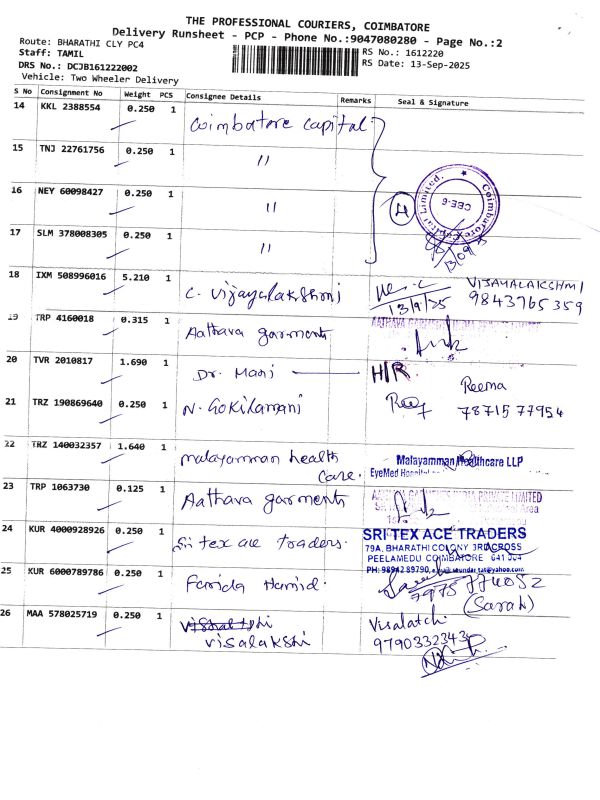 THE PROFESSIONAL COURIERS, COIMBATORE
Delivery Runsheet - PCP - Phone No.:9047080280 - Page No.:2
Route: BHARATHI CLY PC4
Staff: TAMIL
DRS No.: DCJB161222002
Vehicle: Two Wheeler Delivery
RS No.: 1612220
RS Date: 13-Sep-2025
S No Consignment No Weight PCS Consignee Details Remarks Seal & Signature
14 KKL 2388554 0.250 1 Coimbatore capital
15 TNJ 22761756 0.250 1 "
16 NEY 60098427 0.250 1 "
17 SLM 378008305 0.250 1 "
Coimbatore Capital Limited.
CBE-6
13/09
18 IXM 508996016 5.210 1 C. Vijayalakshmi
13/9/25
VIJAYALAKSHMI
9843765359
19 TRP 4160018 0.315 1 Aathava garments
20 TVR 2010817 1.690 1 Dr. Mani H/R
21 TRZ 190869640 0.250 1 N. Gokilamani
Reema
7871577954
22 TRZ 140032357 1.640 1 malayamman health
care.
Malayamman Healthcare LLP
EyeMed Hospital
23 TRP 1063730 0.125 1 Aathava garments
PRIVATE LIMITED
Area
24 KUR 4000928926 0.250 1 Sri tex ace traders.
SRI TEX ACE TRADERS
79A, BHARATHI COLONY 3RD CROSS
PEELAMEDU COIMBATORE 641 004
25 KUR 6000789786 0.250 1 Farida Hamid.
(Sarah)
26 MAA 578025719 0.250 1
visalakshi
Visalatchi
9790332343